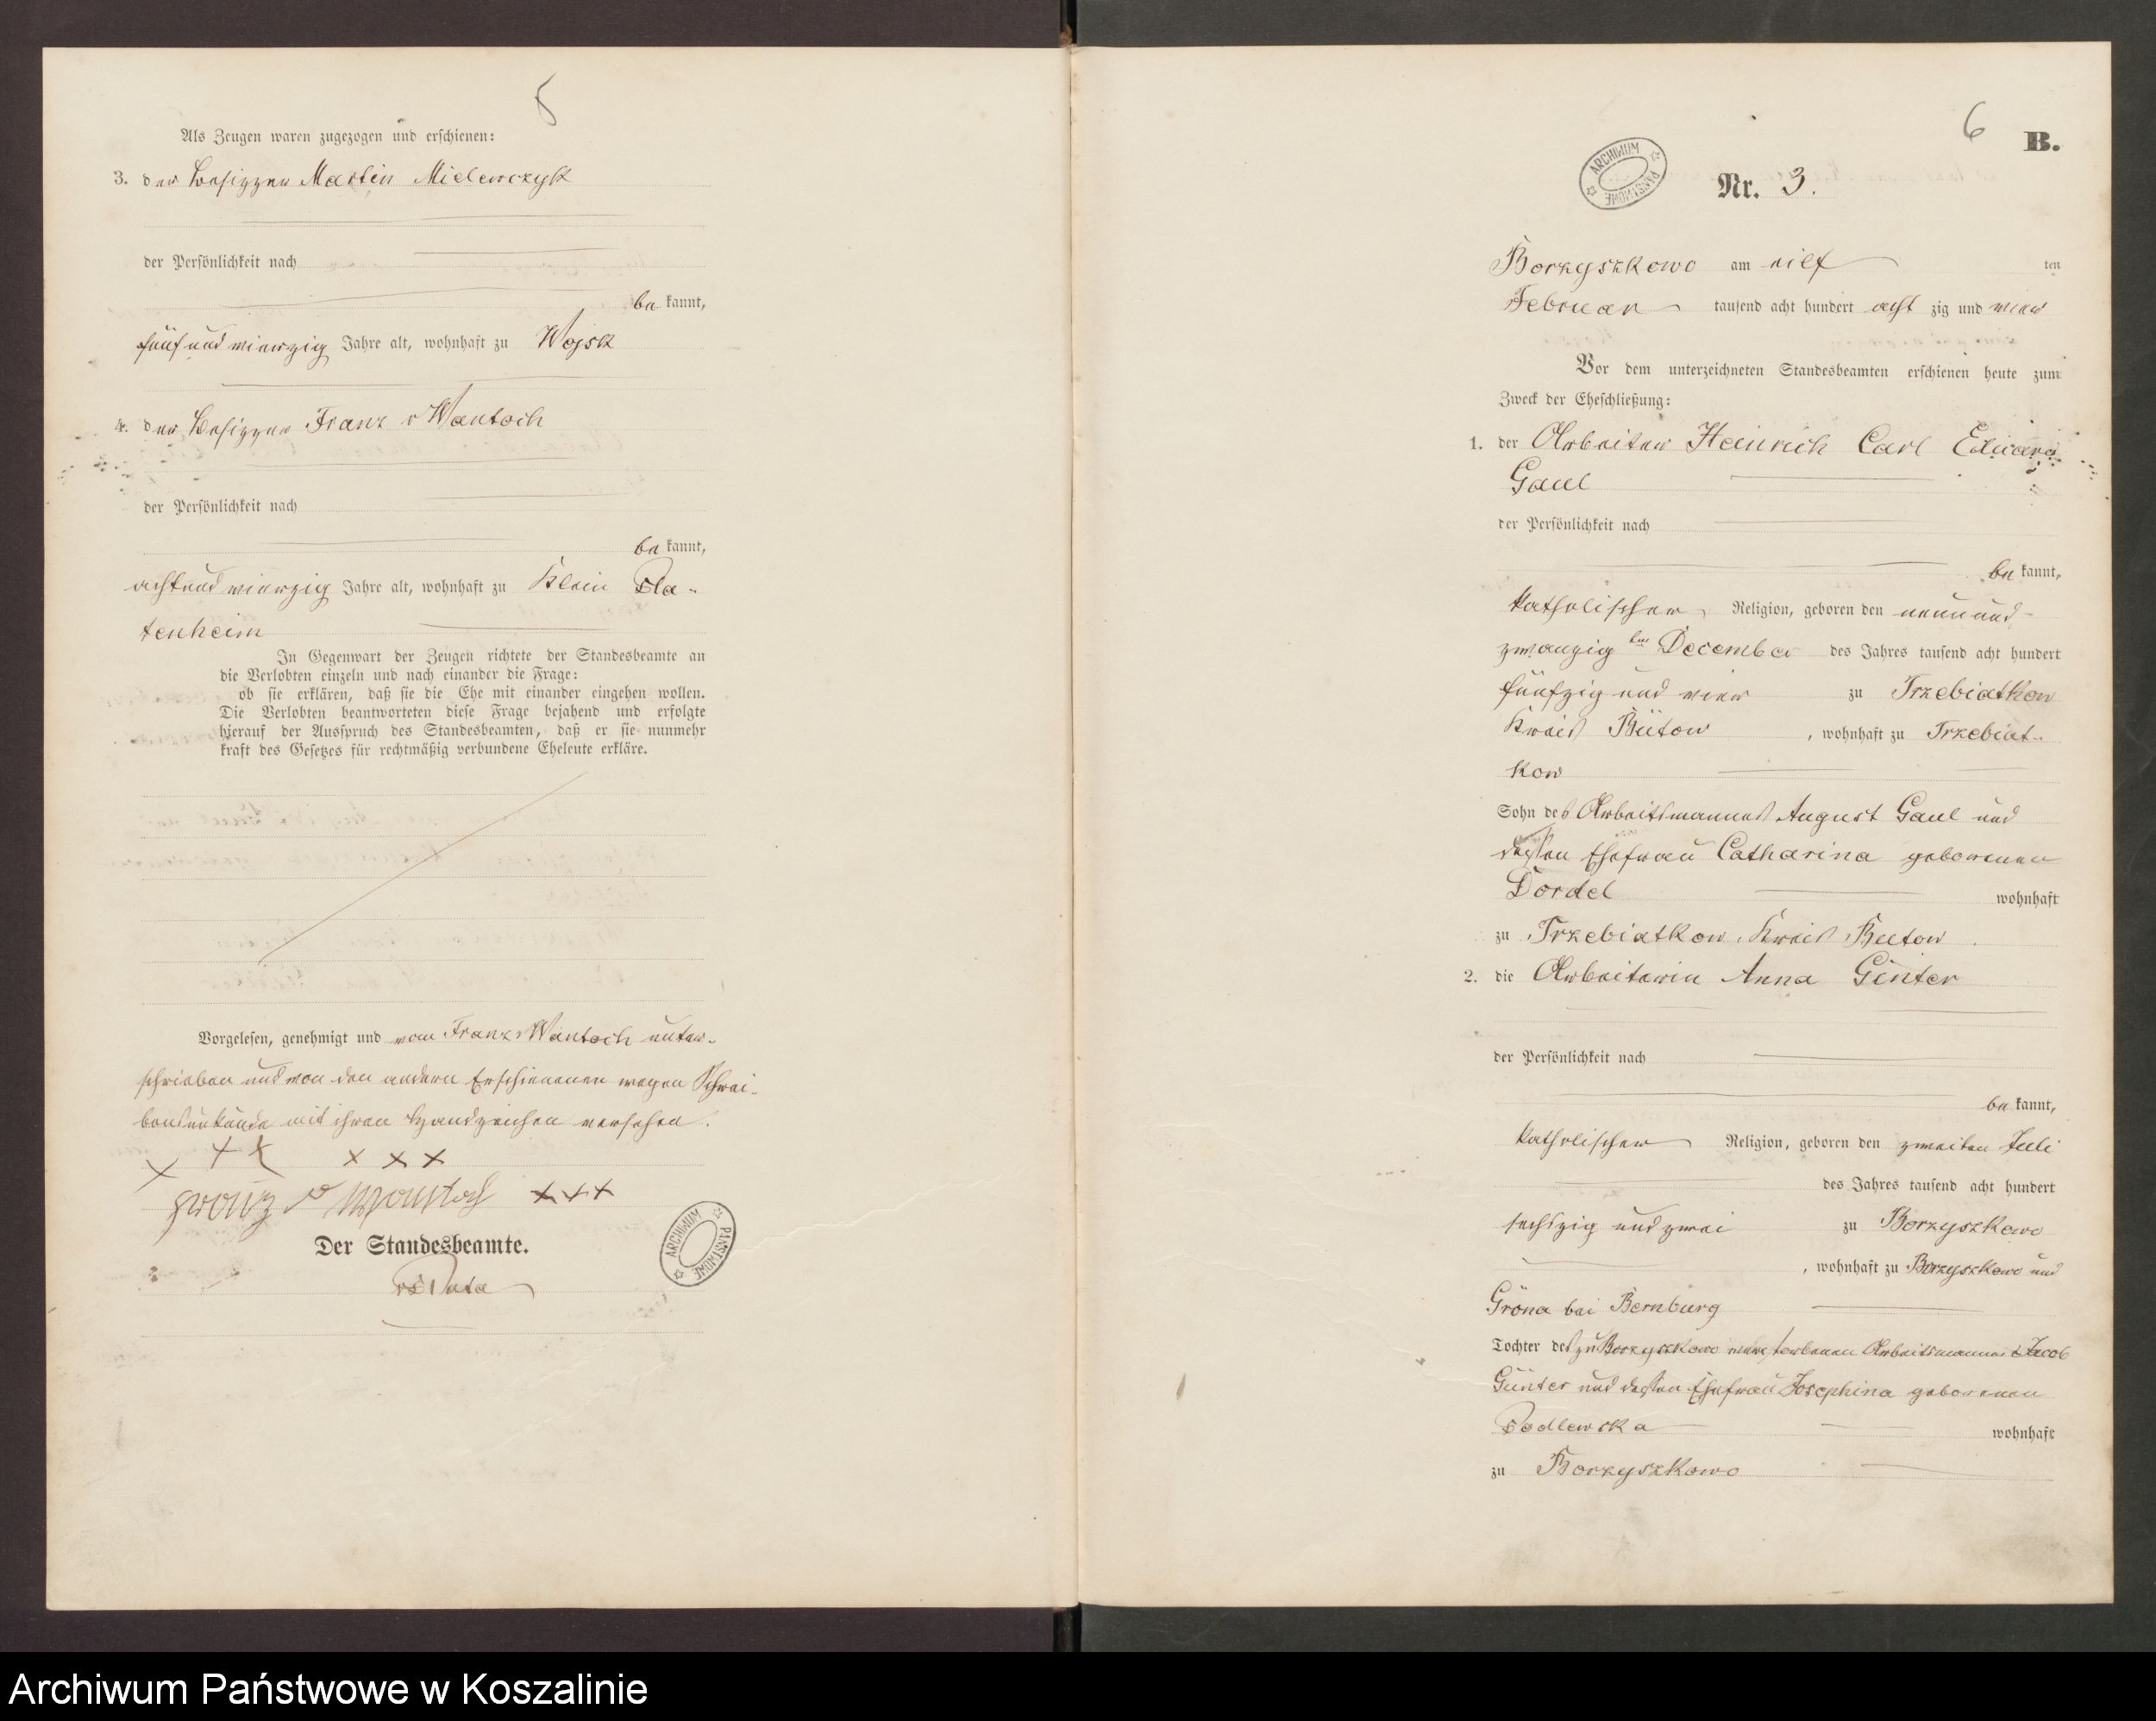 5
Als Zeugen waren zugezogen und erschienen:
3. der Besitzer Martin Mielewczyk
der Persönlichkeit nach
be kannt,
fünfundvierzig Jahre alt, wohnhaft zu Wojsk
4. der Besitzer Franz v Wantoch
der Persönlichkeit nach
be kannt,
achtundvierzig Jahre alt, wohnhaft zu Klein Pla-
tenheim
In Gegenwart der Zeugen richtete der Standesbeamte an
die Verlobten einzeln und nach einander die Frage:
ob sie erklären, daß sie die Ehe mit einander eingehen wollen.
Die Verlobten beantworteten diese Frage bejahend und erfolgte
hierauf der Ausspruch des Standesbeamten, daß er sie nunmehr
kraft des Gesetzes für rechtmäßig verbundene Eheleute erkläre.
Vorgelesen, genehmigt und vom Franz v Wantoch unter-
schrieben und von den andern Erschienenen wegen Schrei-
bensunkunde mit ihren Handzeichen versehen.
x x x x x x
Franz v Wantoch x x x
Der Standesbeamte.
ARCHIWUM PAŃSTWOWE
6
B.
ARCHIWUM PAŃSTWOWE
Nr. 3.
Borzyszkowo am eilf ten
Februar tausend acht hundert acht zig und vier
Vor dem unterzeichneten Standesbeamten erschienen heute zum
Zweck der Eheschließung:
1. der Arbeiter Heinrich Carl Eduard
Gaul
der Persönlichkeit nach
be kannt,
katholischer Religion, geboren den neunund-
zwanzig ten December des Jahres tausend acht hundert
fünfzig und vier zu Trzebiatkow
Kreis Bütow , wohnhaft zu Trzebiat-
kow
Sohn des Arbeitsmannes August Gaul und
dessen Ehefrau Catharina geborenen
Dordel wohnhaft
zu Trzebiatkow, Kreis Buetow
2. die Arbeiterin Anna Ginter
der Persönlichkeit nach
be kannt,
katholischer Religion, geboren den zweiten Juli
des Jahres tausend acht hundert
sechszig und zwei zu Borzyszkowo
, wohnhaft zu Borzyszkowo und
Gröna bei Bernburg
Tochter des zu Borzyszkowo verstorbenen Arbeitsmannes Jacob
Günter und dessen Ehefrau Josephina geborenen
Podlewska wohnhaft
zu Borzyszkowo
Archiwum Państwowe w Koszalinie